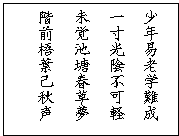 少年易老学難成
一寸光陰不可軽
未覚池塘春草夢
階前梧葉已秋声